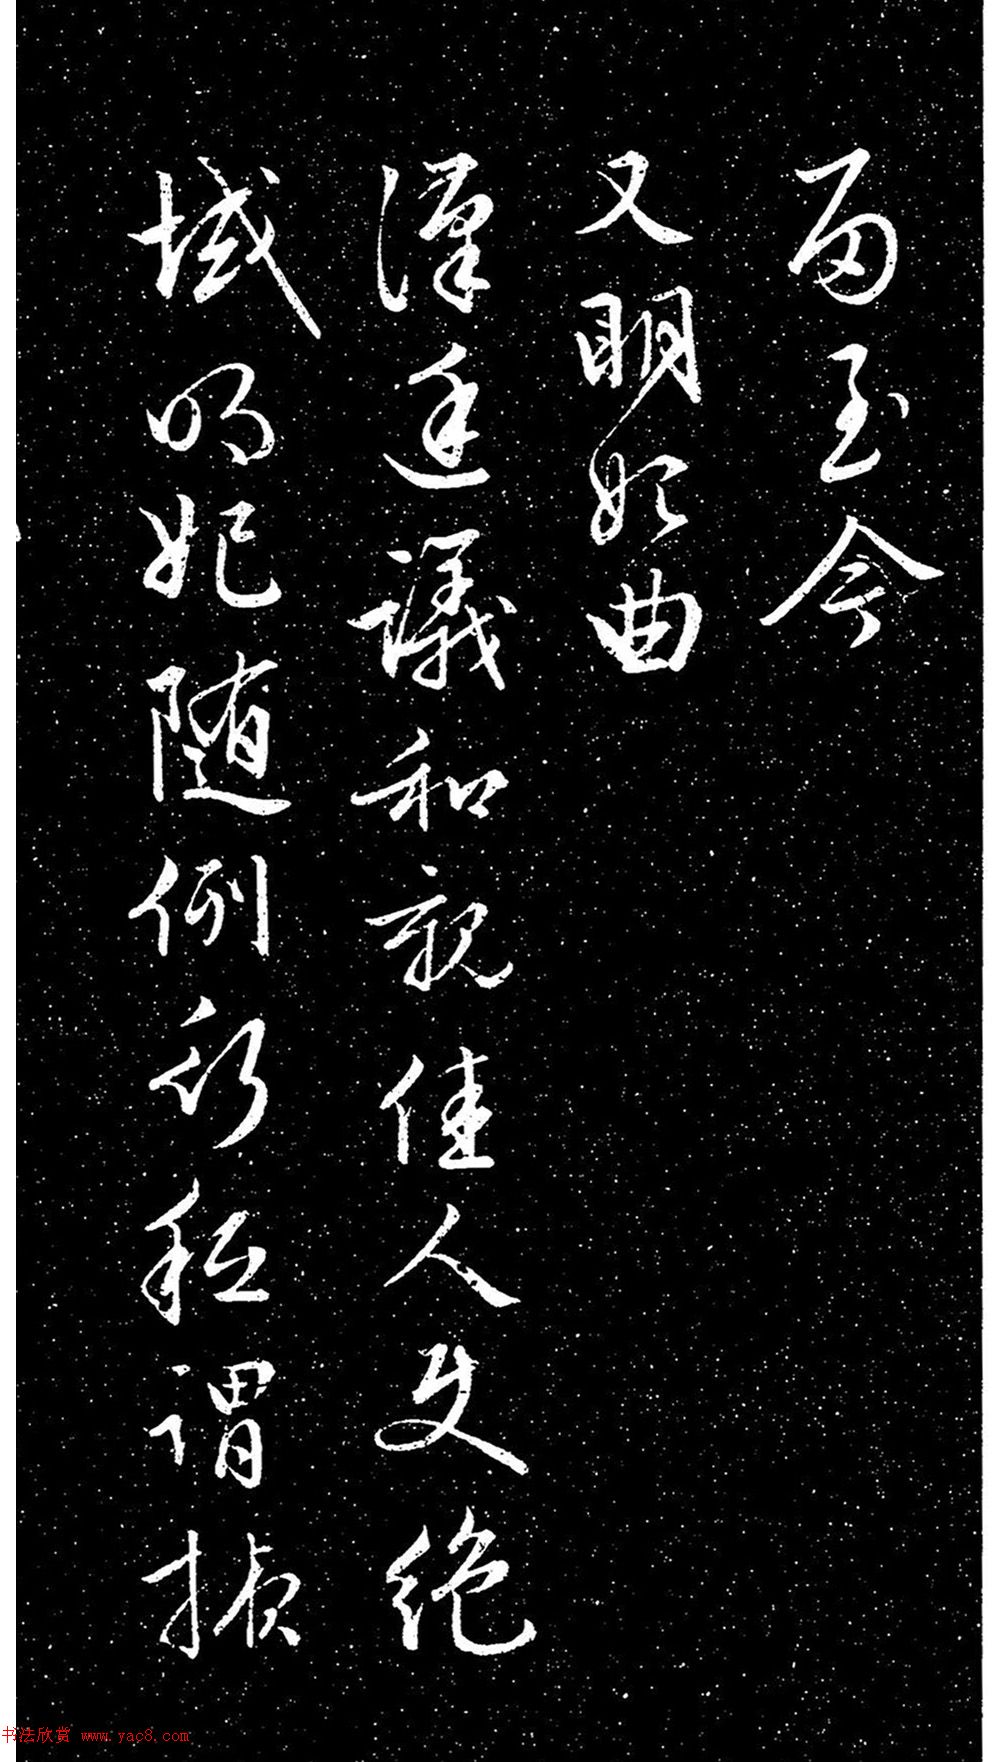 至今
又明妃曲
漢廷議和親佳人使絕
域明妃随例行私謂損
书法欣赏 www.yac8.com